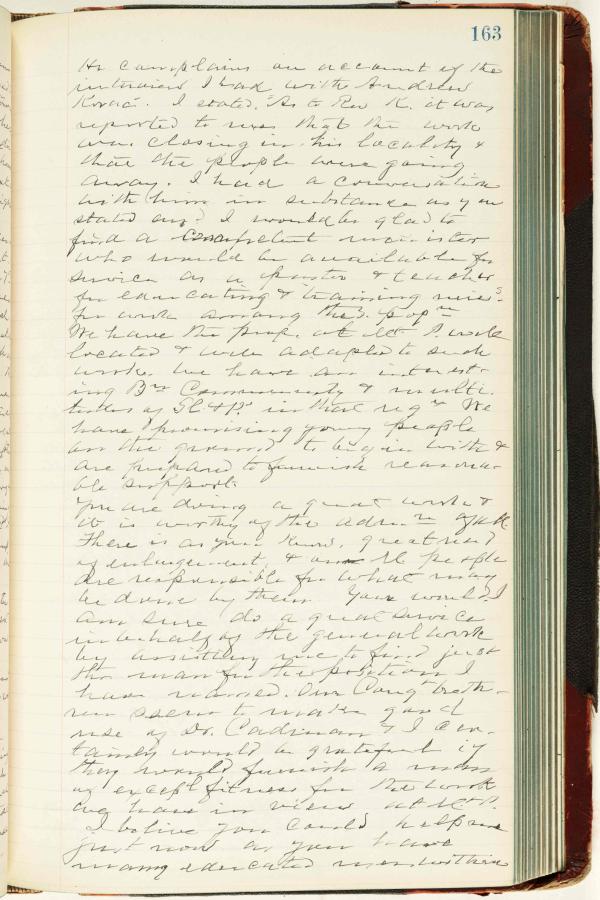 163
He complains on account of the
interview I had with Andrew
Kovac. I stated, "As to Rev K. it was
reported to me that the work
was closing in his locality &
that the people were going
away. I had a conversation
with him in substance as you
stated and I would be glad to
find a competent minister
who would be available for
service as a pastor & teacher
for educating & training miss.s
for work among these peop
We have the prop. at
located & well adapted to such
work. We have an interest-
ing Community & multi-
tudes of in that reg. We
have promising young people
on the ground to begin with &
are prepared to furnish reasona-
ble support.
You are doing a great work &
it is worthy of the of all.
There is as you know, great need
of enlargement, & people
are responsible for what may
be done by them. You would I
am sure do a great service
in behalf of the general work
by assisting me to find just
the man for the position I
have named. Our Cong breth-
ren seem to make good
use of Dr. Cadman & I cer-
tainly would be grateful if
they would furnish a man
of except fitness for the work
we have in view at
I believe you could help me
just now as you have
many educated men within